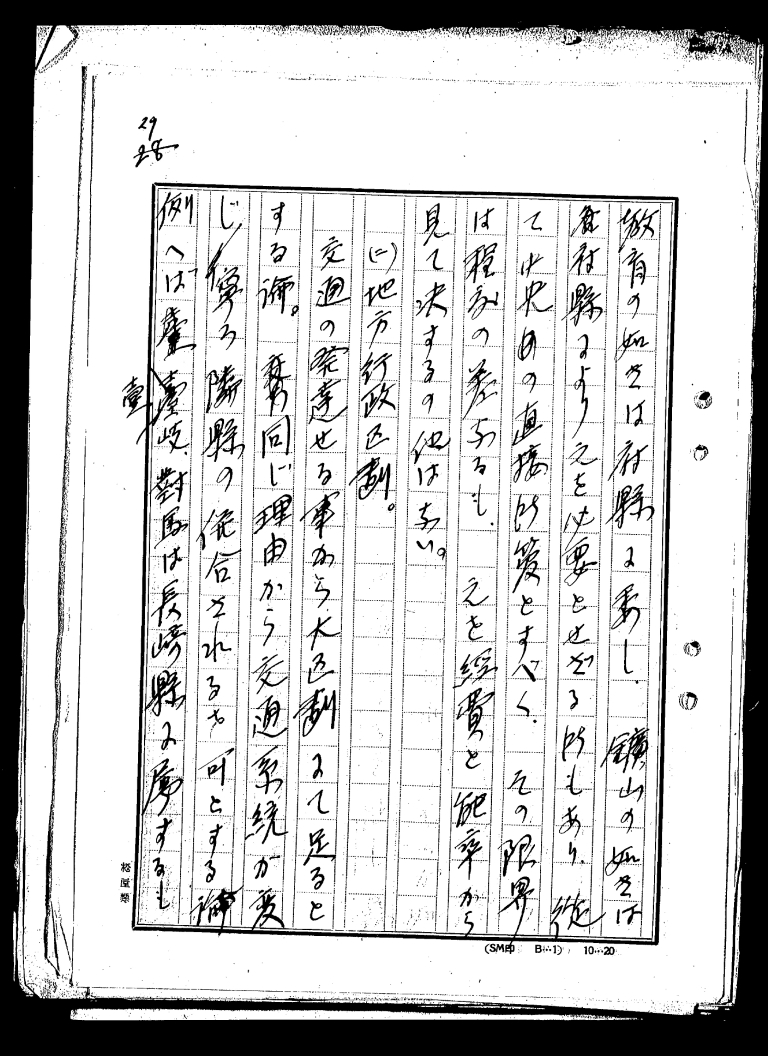 29
28
教育の如きは府縣に委し、鑛山の如きは
各府縣により之を必要とせざる所もあり、從
て中央の直接所管とすべく、その限界
は程度の差なるも、之を経費と能率から
見て决するの他は無い。
(二)地方行政区劃。
交通の発達せる事から大区劃にて足ると
する論。又同じ理由から交通系統が変
じ、寧ろ隣縣の併合されるを可とする論
例へば壹岐、對馬は長崎縣に属するも
壹
松屋製
(SM印 B…1) 10…20